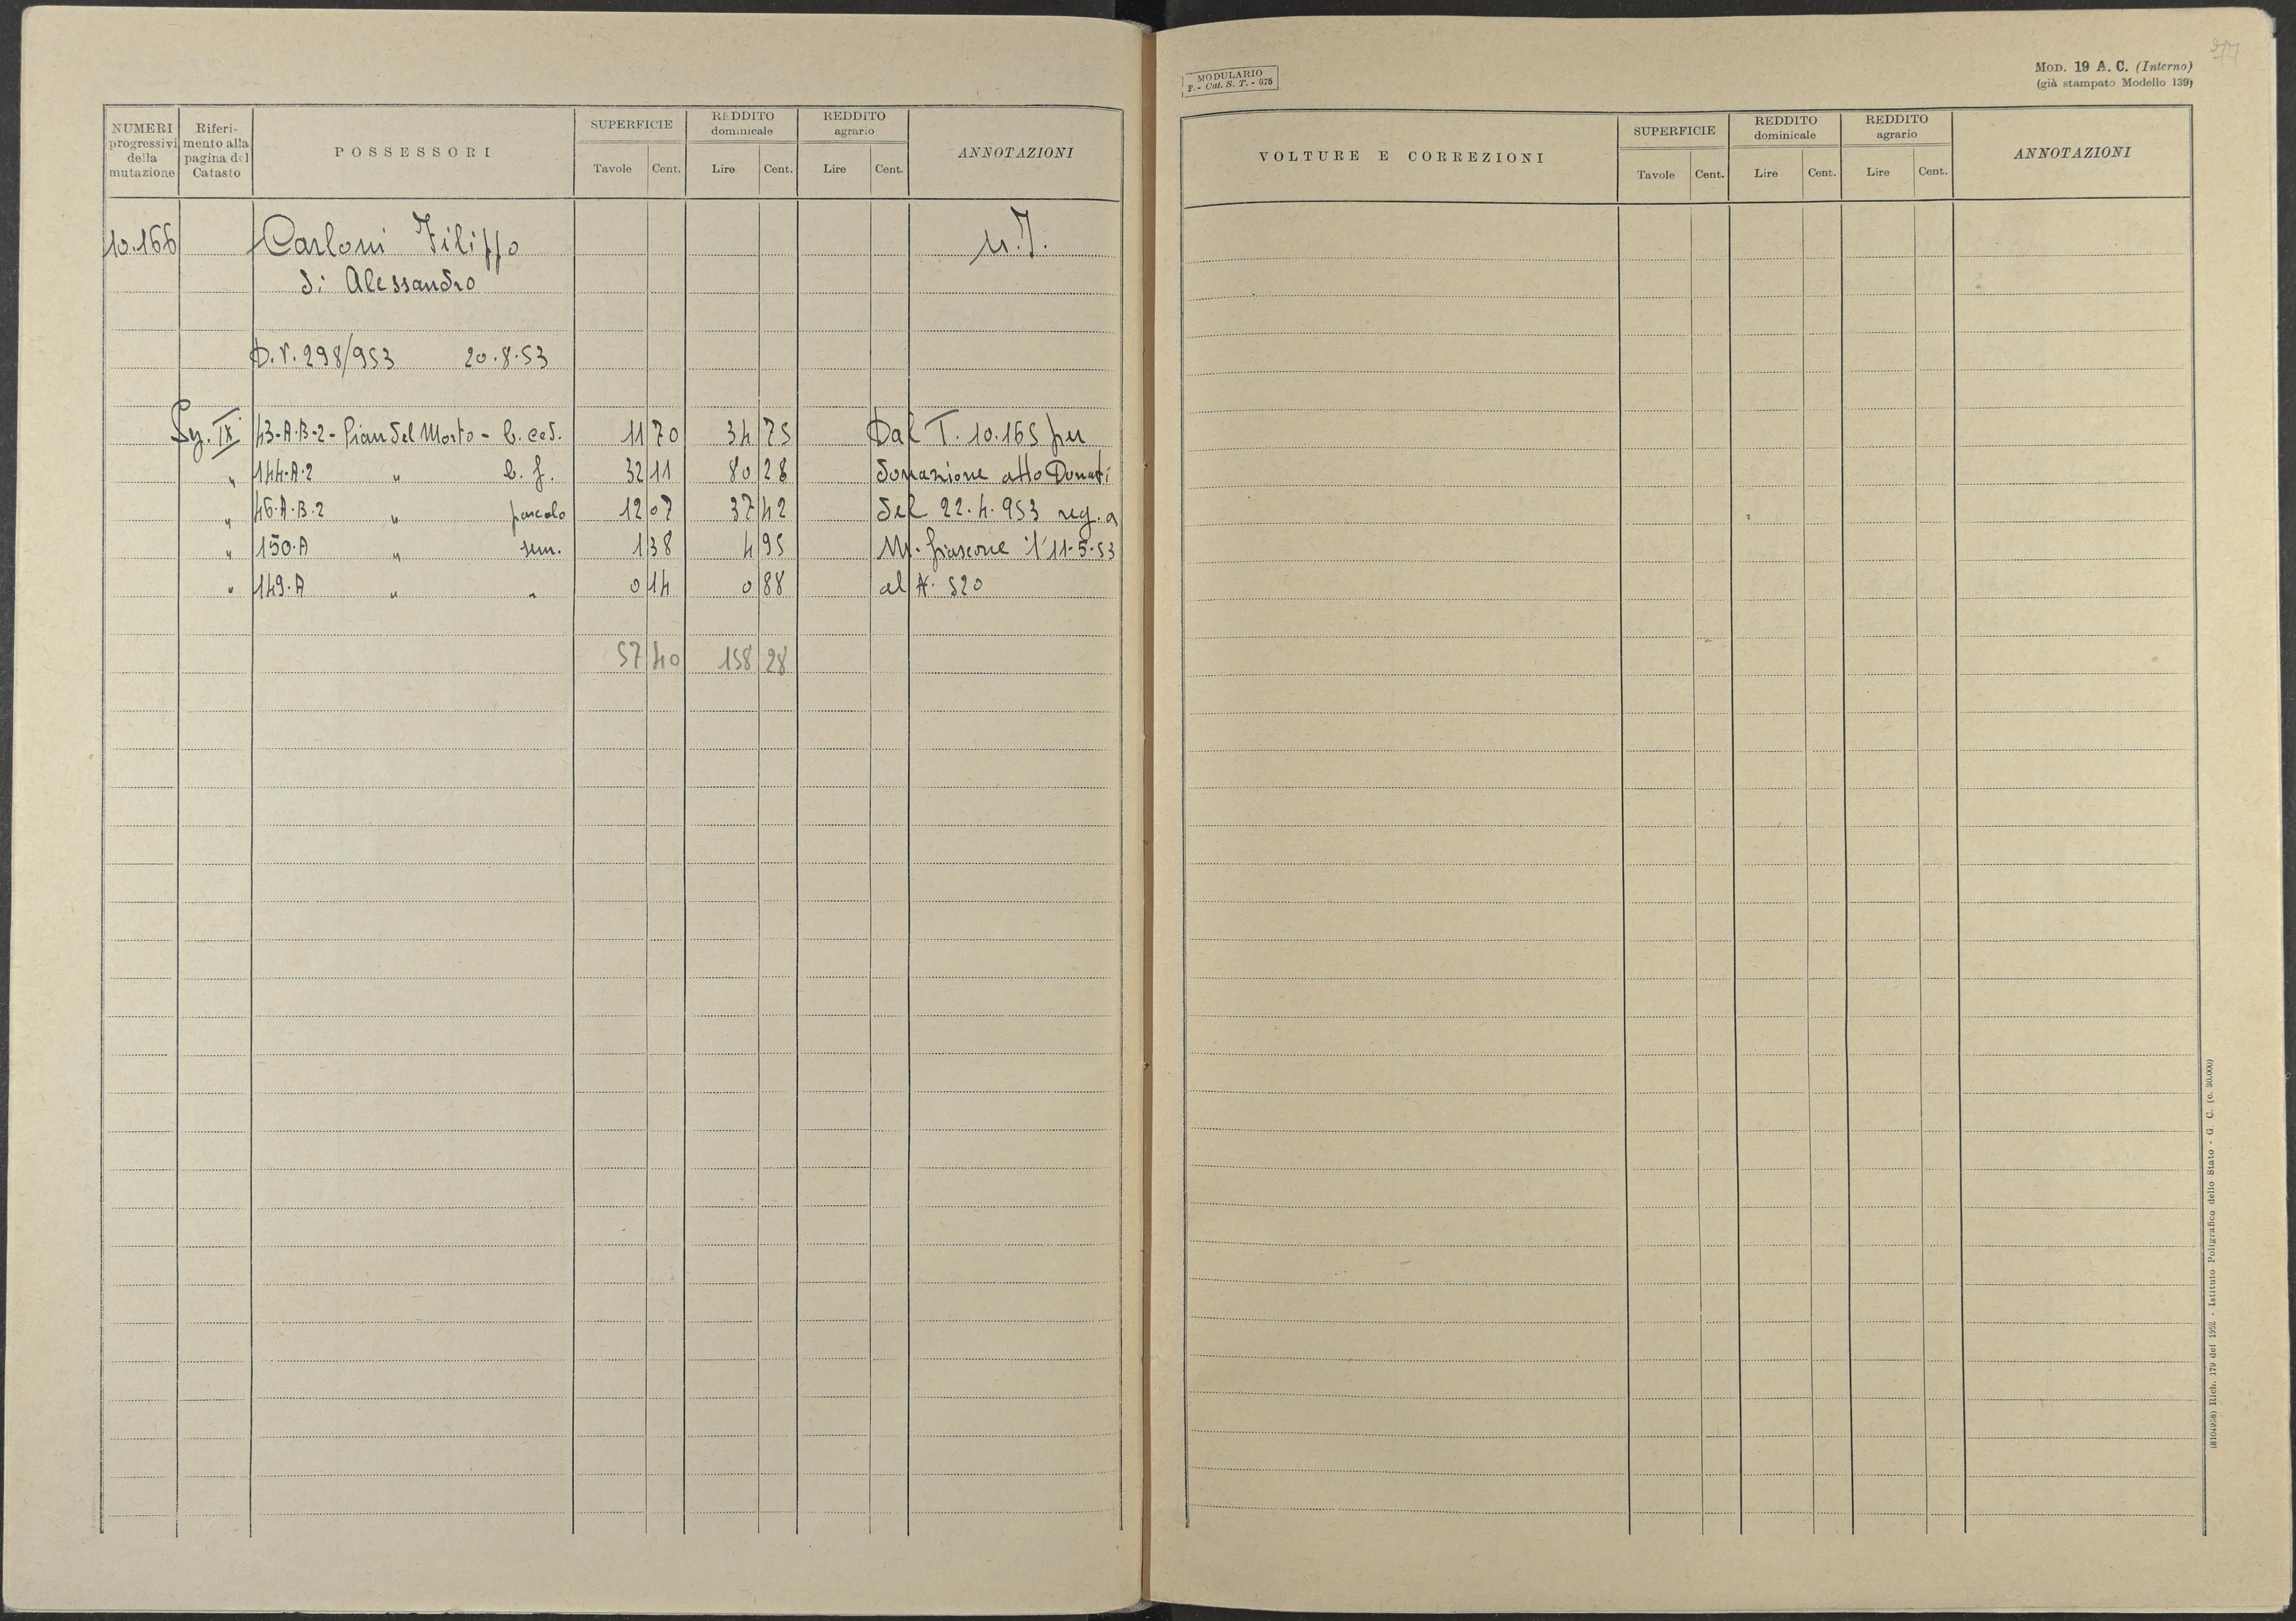 NUMERI progressivi della mutazione
Riferimento alla pagina del Catasto
POSSESSORI
SUPERFICIE
Tavole Cent.
REDDITO dominicale
Lire Cent.
REDDITO agrario
Lire Cent.
ANNOTAZIONI
10.166 Carloni Filippo
di Alessandro
D.V. 298/953 20.8.53
Sez. IX 43-A-B-2 - Pian del Morto - b. ced. 11 70 34 75 Dal T. 10.165 per
" 144-A-2 " b. f. 32 11 80 28 donazione atto Donati
" 46-A-B-2 " pascolo 12 07 37 42 del 22.4.953 reg. a
" 150-A " sem. 1 38 4 95 M. fiascone l'11-5-53
" 149-A " " 0 14 0 88 al N. 520
57 40 158 28
MODULARIO
F. - Cat. S. T. - 675
MOD. 19 A. C. (Interno)
(già stampato Modello 139)
77
VOLTURE E CORREZIONI
SUPERFICIE
Tavole Cent.
REDDITO dominicale
Lire Cent.
REDDITO agrario
Lire Cent.
ANNOTAZIONI
(8104958) Rich. 179 del 1952 - Istituto Poligrafico dello Stato - G. C. (c. 30.000)